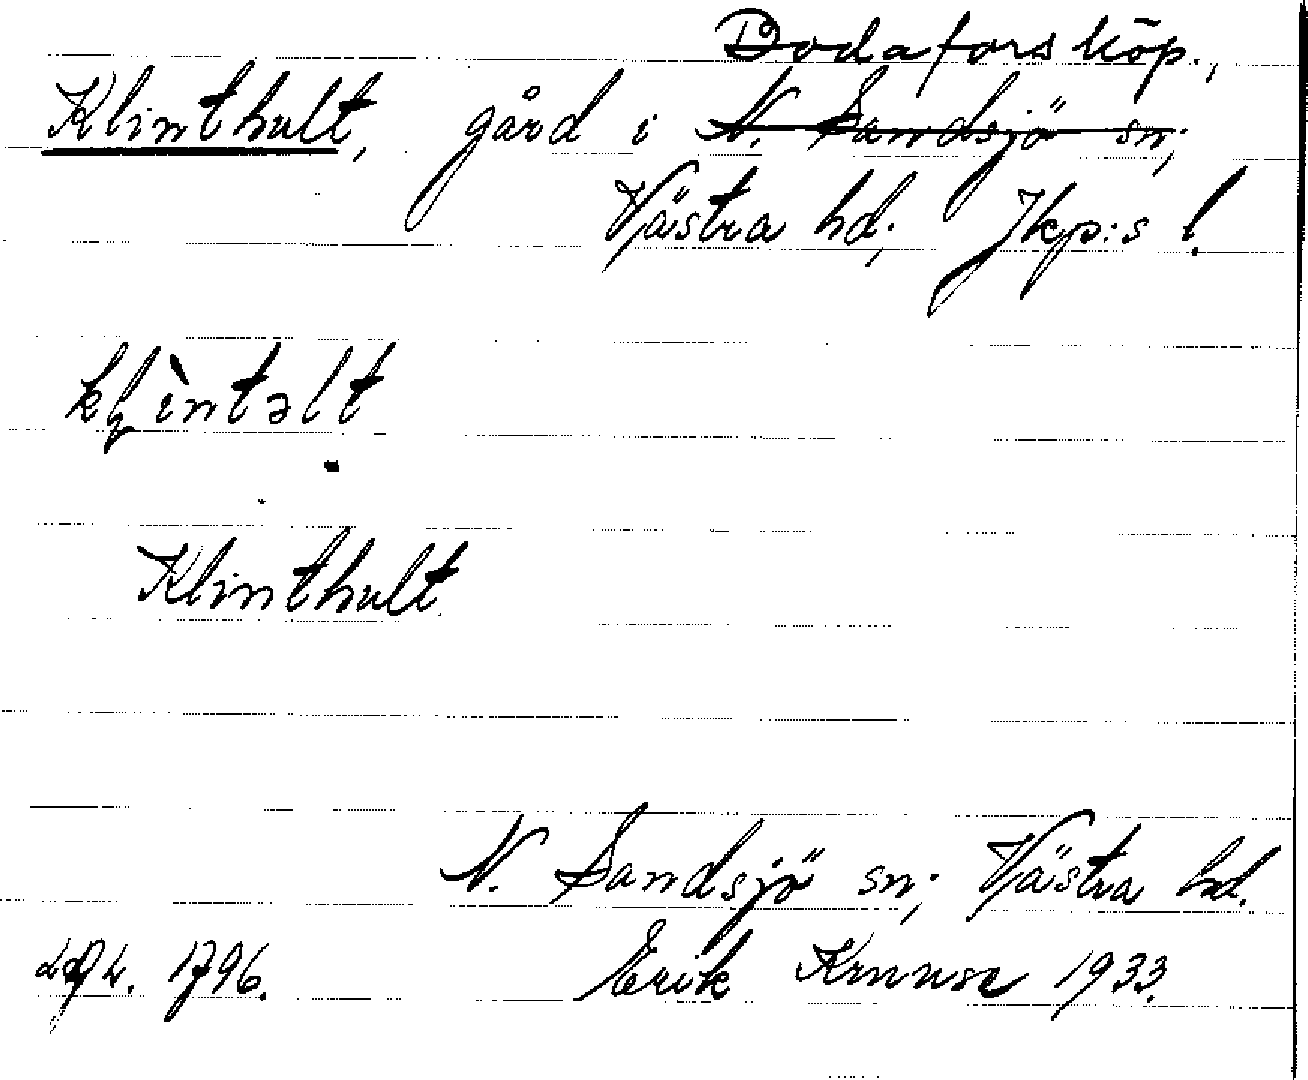 Bodafors köp.,
Klinthult, gård i N. Sandsjö sn;
Västra hd; Jkp:s l.
kḷìntəlt
Klinthult
N. Sandsjö sn; Västra hd.
1796. Erik 1933.